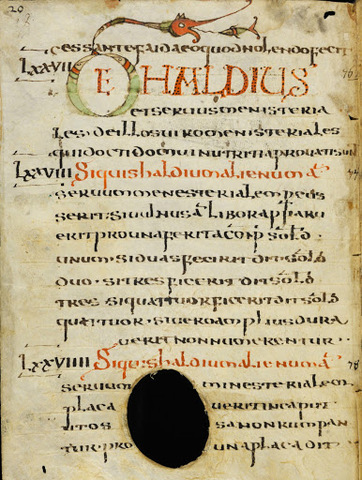 20
cessante faida eo quod nolendo fecit
LXXVII DE HALDIUS
et servius menisteria
les de illos viro menisteriales
qui docti domui nutriti aprovati sun
LXXVIII Siquis haldium alienum a
servum menesterialem percus
serit si vulnus a libor apparu
erit pro una ferita conp solid
unum si duas fecerit dit solid
duo · si tres fecerit dit · solid
tres si quattuor fecerit dit solid
quattuor · si vero amplius dura
verit non numerentur
LXXVIIII Siquis haldium alienum a
servum menisterialem
plaga verit in capit
ut os sa non rumpan
tur · pro una plaga dit